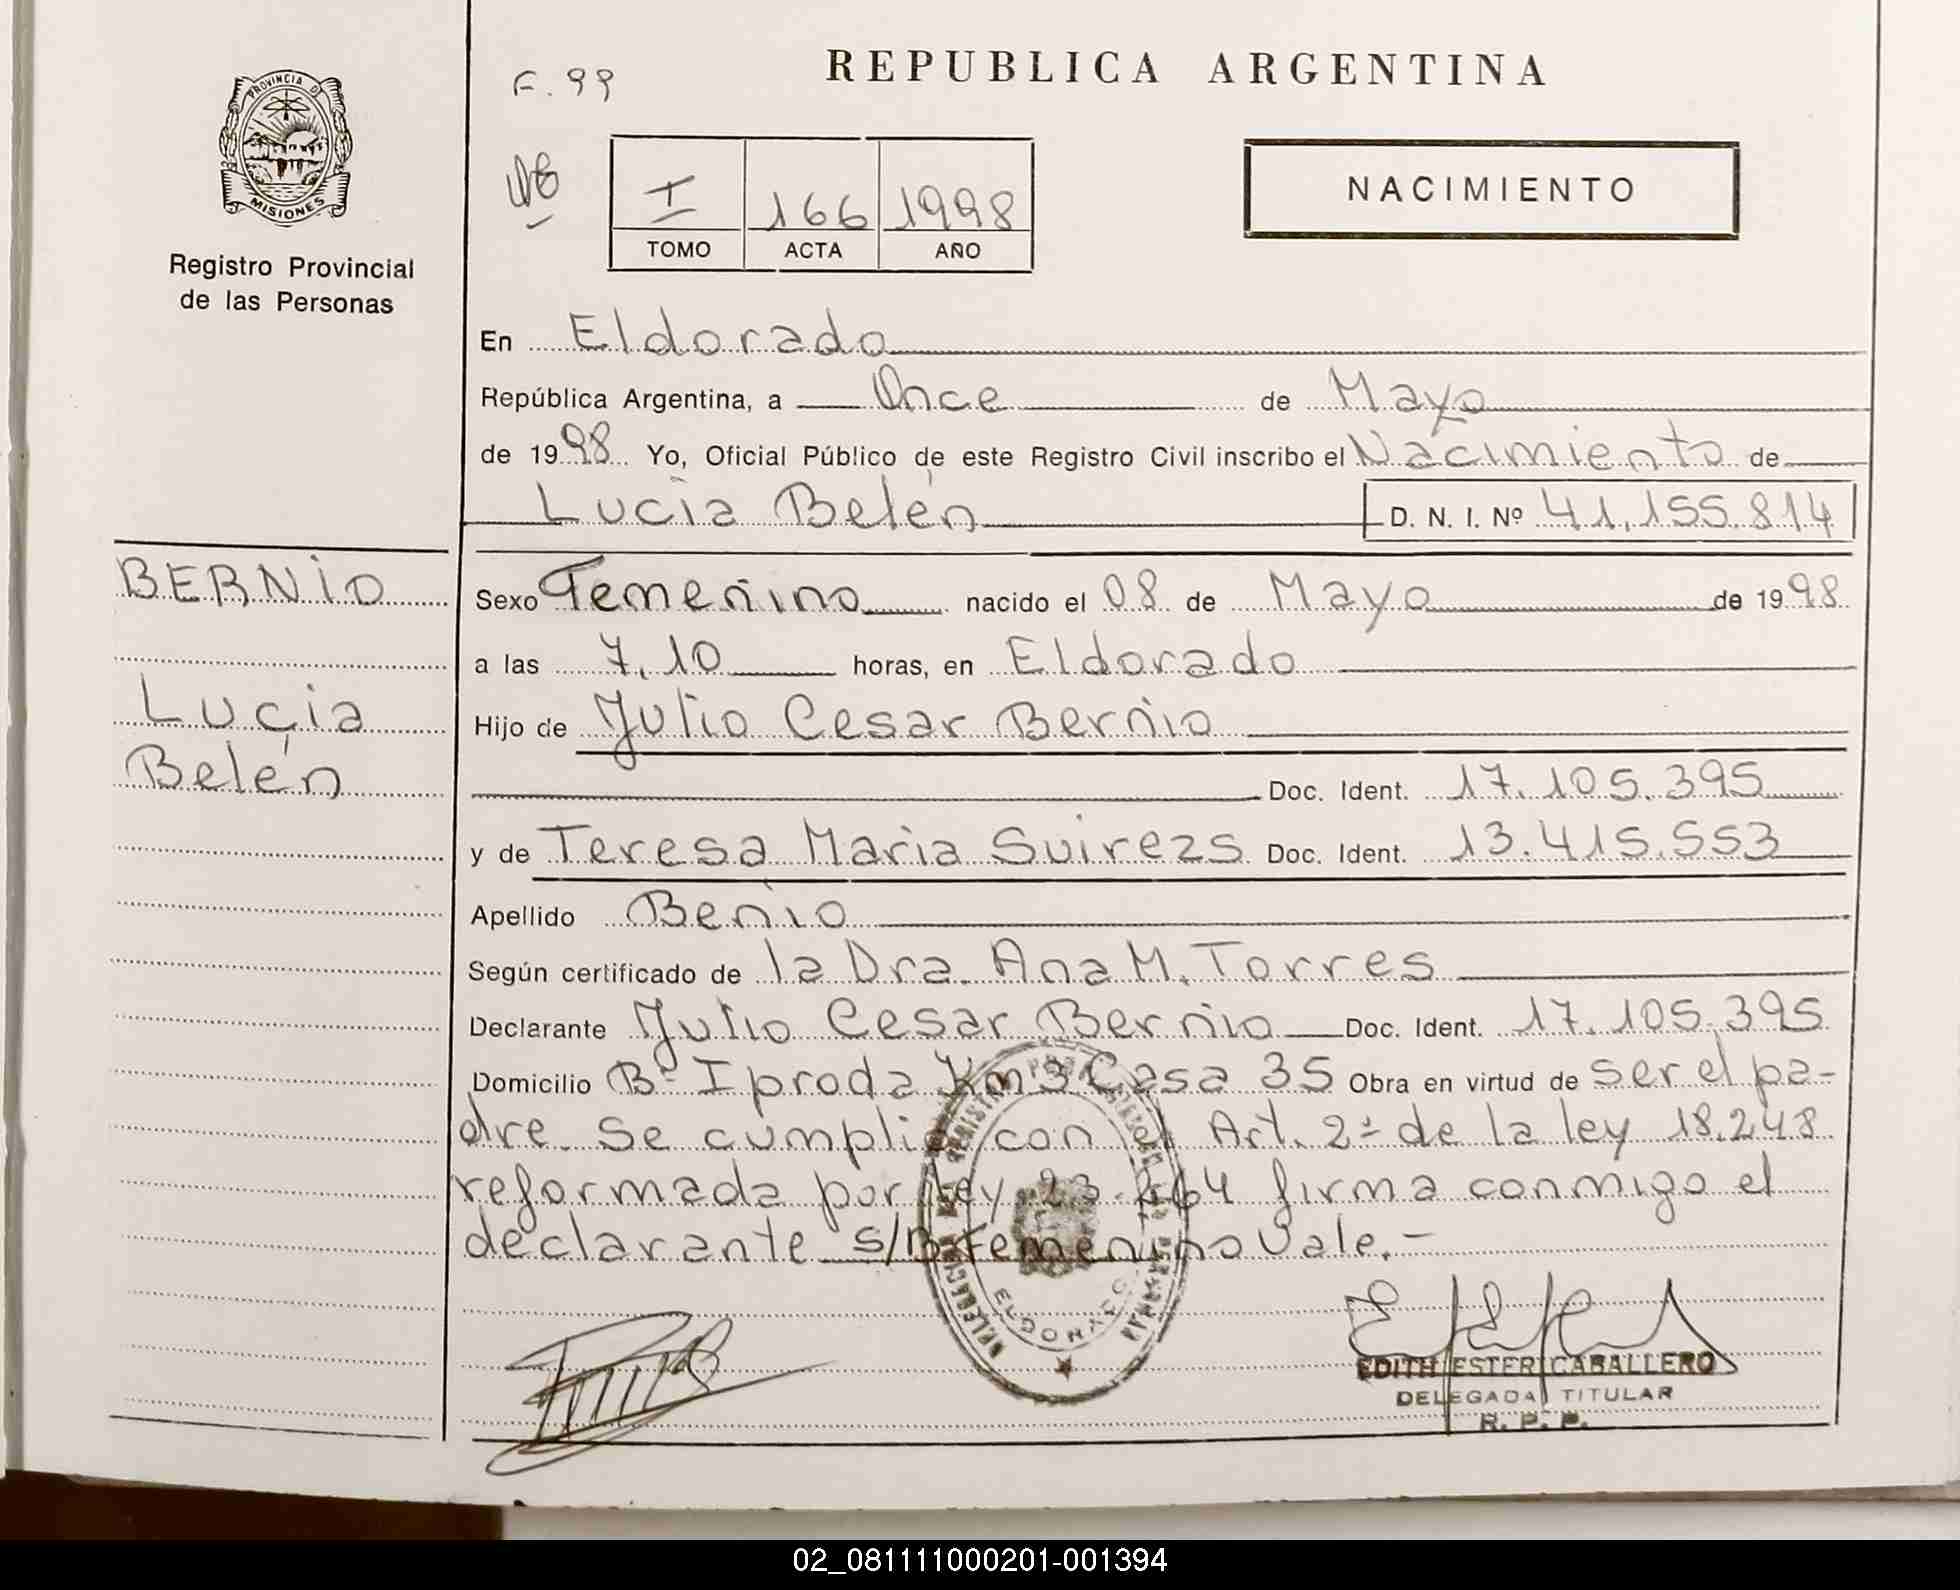 REPUBLICA ARGENTINA
F. 99
PROVINCIA D
MISIONES
Registro Provincial
de las Personas
I 166 1998
TOMO ACTA AÑO
NACIMIENTO
En Eldorado
República Argentina, a Once de Mayo
de 1998 Yo, Oficial Público de este Registro Civil inscribo el Nacimiento de
Lucia Belén D. N. I. Nº 41.155.814
BERNIO
Lucia
Belén
Sexo Femenino nacido el 08 de Mayo de 1998
a las 7,10 horas, en Eldorado
Hijo de Julio Cesar Bernio
Doc. Ident. 17.105.395
y de Teresa Maria Suirezs Doc. Ident. 13.415.553
Apellido Benio
Según certificado de la Dra. Ana M. Torres
Declarante Julio Cesar Bernio Doc. Ident. 17.105.395
Domicilio Bº Iproda Km 3 Casa 35 Obra en virtud de ser el pa-
dre. Se cumplió con el Art. 2º de la ley 18.248
reformada por ley 23.264 firma conmigo el
declarante S/B Femenino Vale.-
ELDORADO
EDITH ESTER CABALLERO
DELEGADA TITULAR
R. P. P.
02_081111000201-001394